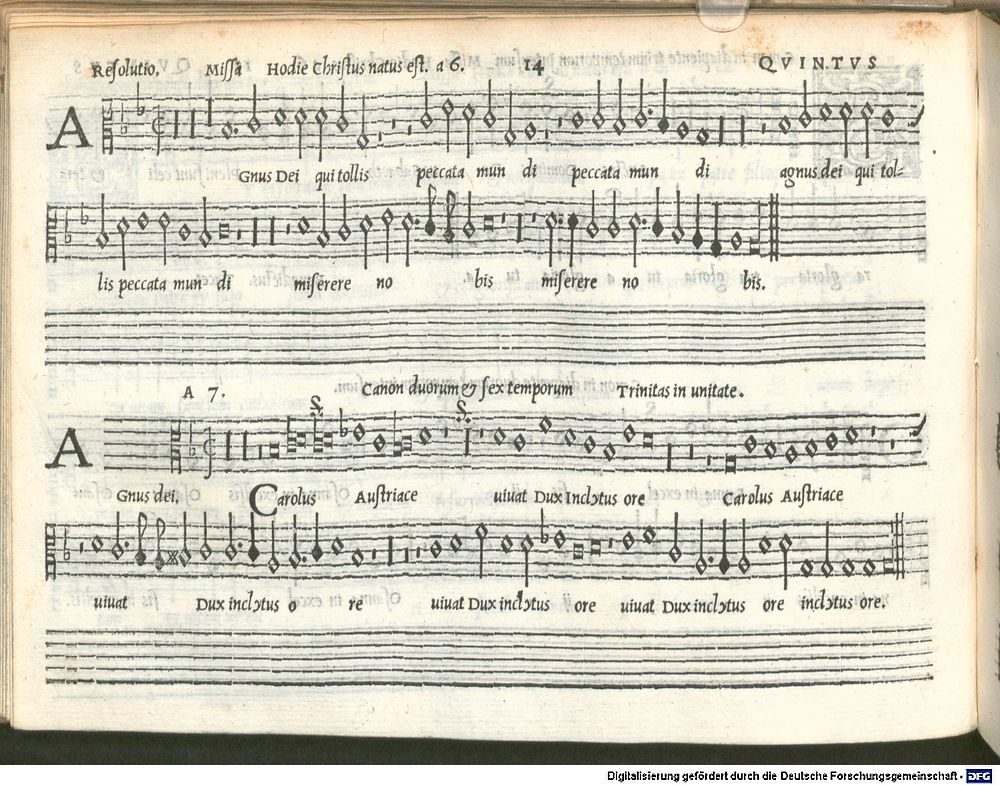 Resolutio. Missa Hodie Christus natus est. a 6. 14 QVINTVS
A Gnus Dei qui tollis petcata mun di peccata mun di agnus dei qui tol-
lis peccata mun di miserere no bis miserere no bis.
A 7. Canon duorum & sex temporum Trinitas in unitate.
A Gnus dei, Carolus Austriace uiuat Dux Inclytus ore Carolus Austriace
uiuat Dux inclytus o re uiuat Dux inclytus ij ore uiuat Dux inclytus ore inclytus ore.
Digitalisierung gefördert durch die Deutsche Forschungsgemeinschaft - DFG